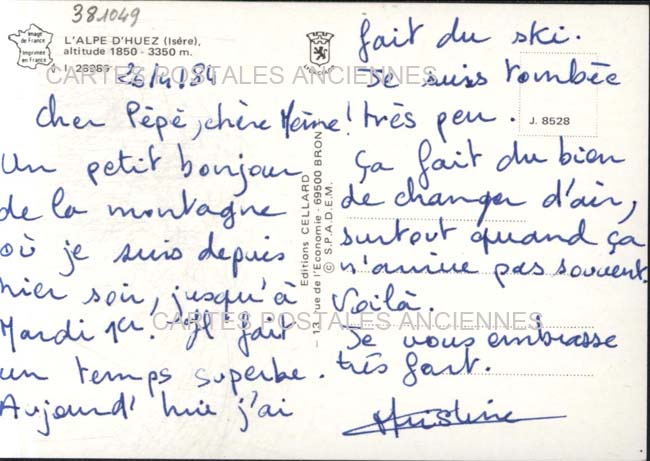 381049
Image
de France
Imprimée
en France
L'ALPE D'HUEZ (Isère),
altitude 1850 - 3350 m.
CARTES POSTALES ANCIENNES
26/4.84
Cher Pépé, chère Mémé!
Un petit bonjour
de la montagne
où je suis depuis
hier soir, jusqu'à
Mardi 1er. Il fait
un temps superbe.
Aujourd'hui j'ai
Editions CELLARD
- 13, rue de l'Economie - 69500 BRON
© S.P.A.D.E.M.
fait du ski.
Je suis tombée
très peu.
J. 8528
Ça fait du bien
de changer d'air,
surtout quand ça
n'arrive pas souvent.
Voilà.
CARTES POSTALES ANCIENNES
Je vous embrasse
très fort.
Christine